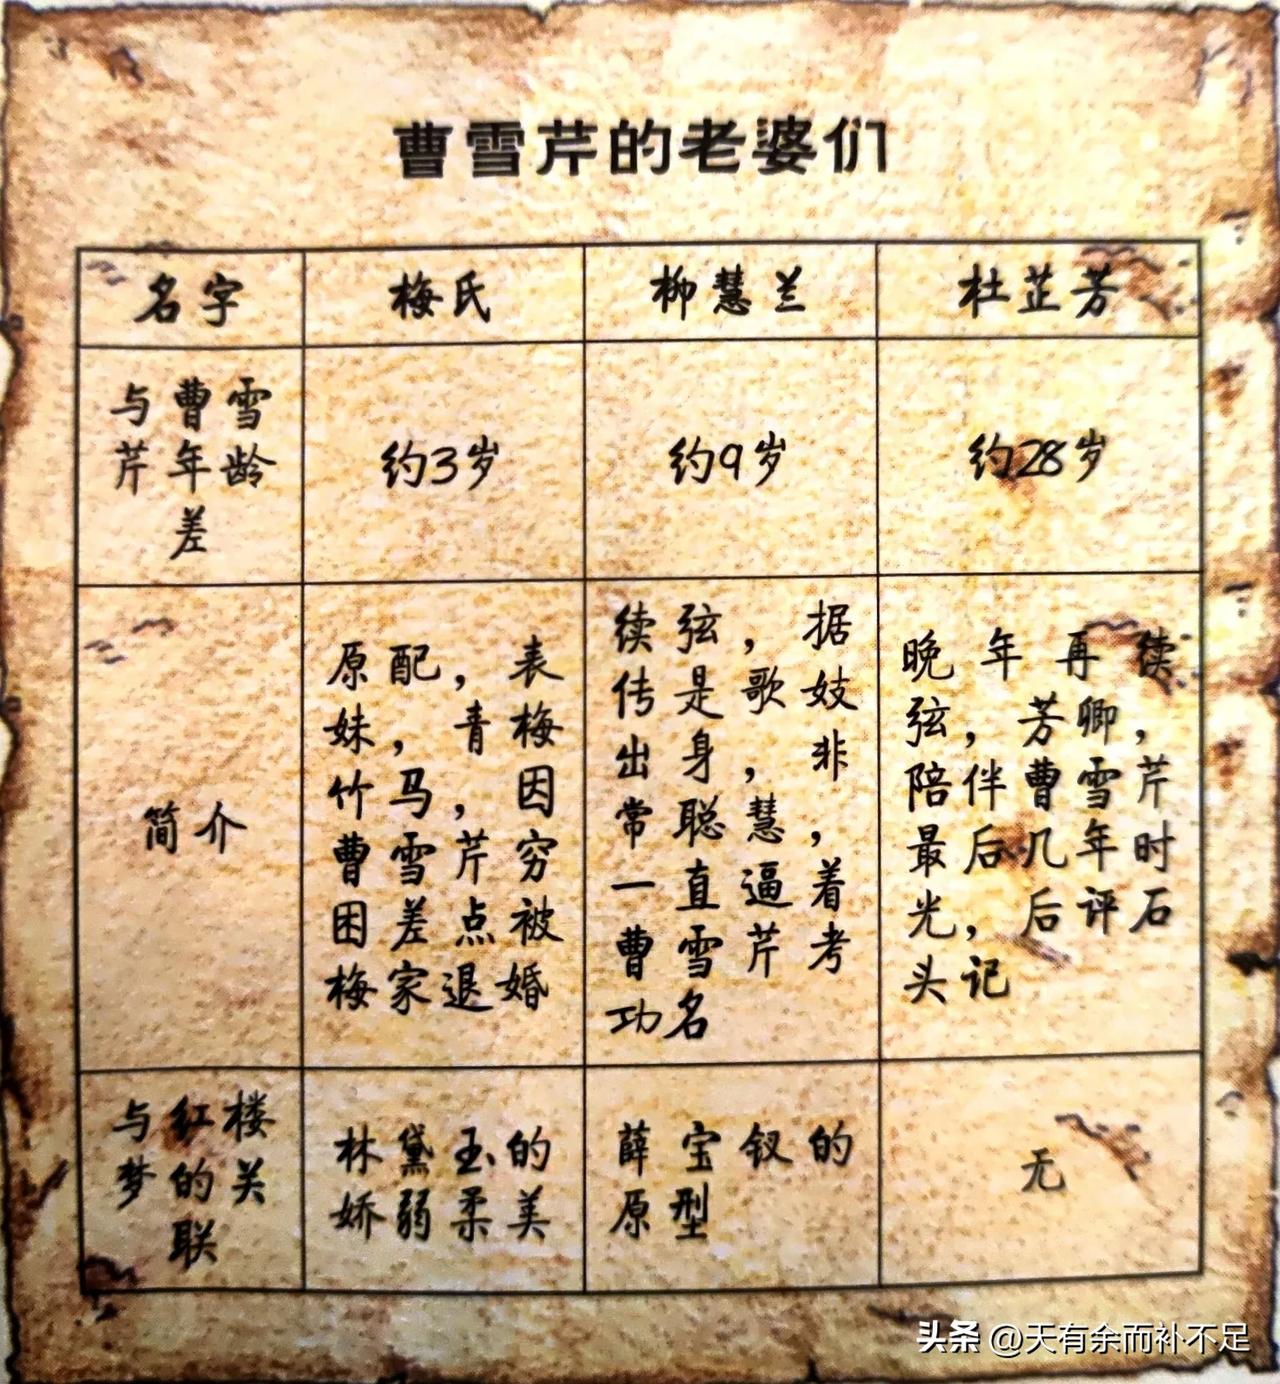 曹雪芹的老婆们
名字
梅氏
柳慧兰
杜芷芳
与曹雪
芹年龄
差
约3岁
约9岁
约28岁
简介
原配，表
妹，青梅
竹马，因
曹雪芹穷
困差点被
梅家退婚
续弦，据
传是歌妓
出身，非
常聪慧，
一直逼着
曹雪芹考
功名
晚年再续
弦，芳卿，
陪伴曹雪芹
最后几年时
光，后评石
头记
与红楼
梦的关
联
林黛玉的
娇弱柔美
薛宝钗的
原型
无
头条 @天有余而补不足